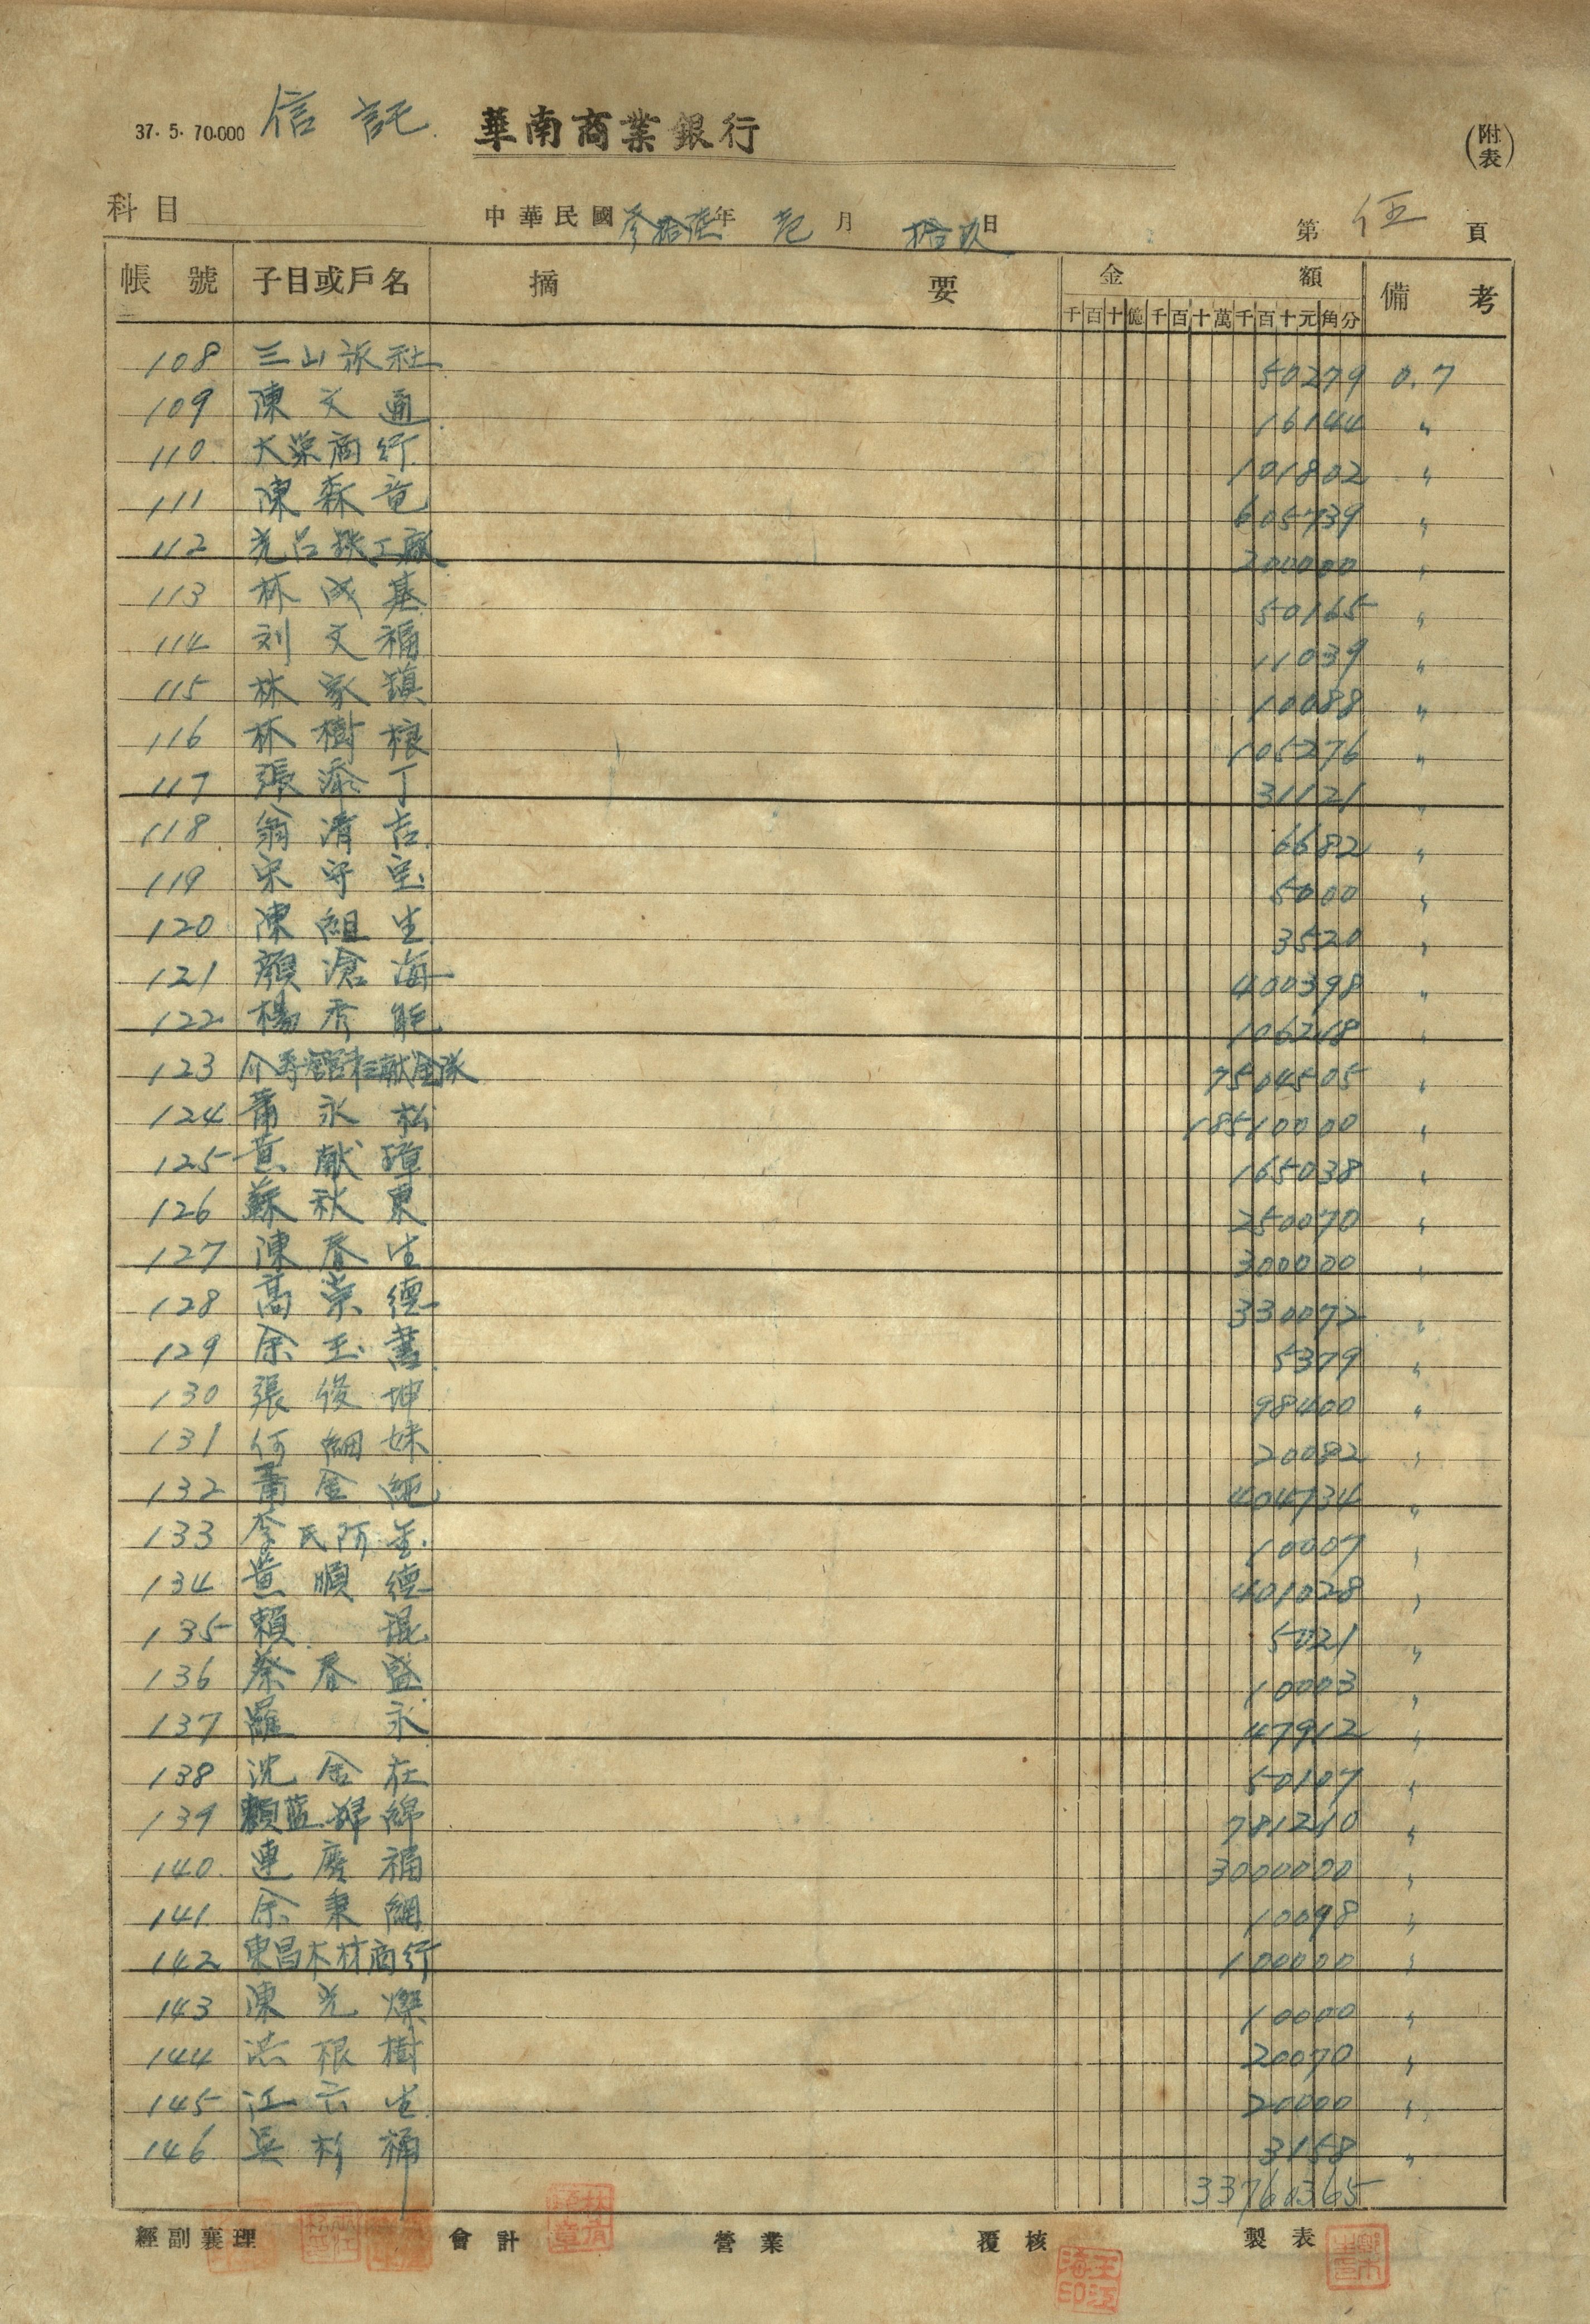 37. 5. 70.000 信託 華南商業銀行 (附表)
科目 中華民國參拾柒年 壱月 拾玖日 第伍頁
帳號 子目或戶名 摘要 金額 備考
千百十億千百十萬千百十元角分
108 三山旅社 50279 0.7
109 陳文通 16144 〃
110 大榮商行 101802 〃
111 陳森竜 605739 〃
112 光呂鉄工廠 200000 〃
113 林成基 50165 〃
114 刘文福 11039 〃
115 林家鎮 10088 〃
116 林樹根 105276 〃
117 張添丁 31121 〃
118 翁清吉 6682 〃
119 宋守宝 5000 〃
120 陳組生 3520 〃
121 顏滄海 400398 〃
122 楊秀能 106218 〃
123 介壽館献金隊 7504505 〃
124 蕭永松 18510000 〃
125 黃献璋 165038 〃
126 蘇秋東 250070 〃
127 陳春生 300000 〃
128 高崇德 330072 〃
129 余玉 5379 〃
130 張俊坤 98400 〃
131 何細妹 20082 〃
132 蕭金純 404734 〃
133 李氏阿笔 10007 〃
134 黃順德 401028 〃
135 賴混 5021 〃
136 蔡春盛 10003 〃
137 羅永 47912 〃
138 沈金在 50107 〃
139 顏藍綿 781210 〃
140 連慶福 3000000 〃
141 余秉綱 10098 〃
142 東昌木材商行 100000 〃
143 陳光燦 10000 〃
144 洪根樹 20070 〃
145 江六生 20000 〃
146 吳桶 3158 〃
33761365
經副襄理 會計 營業 覆核 製表
王江海印